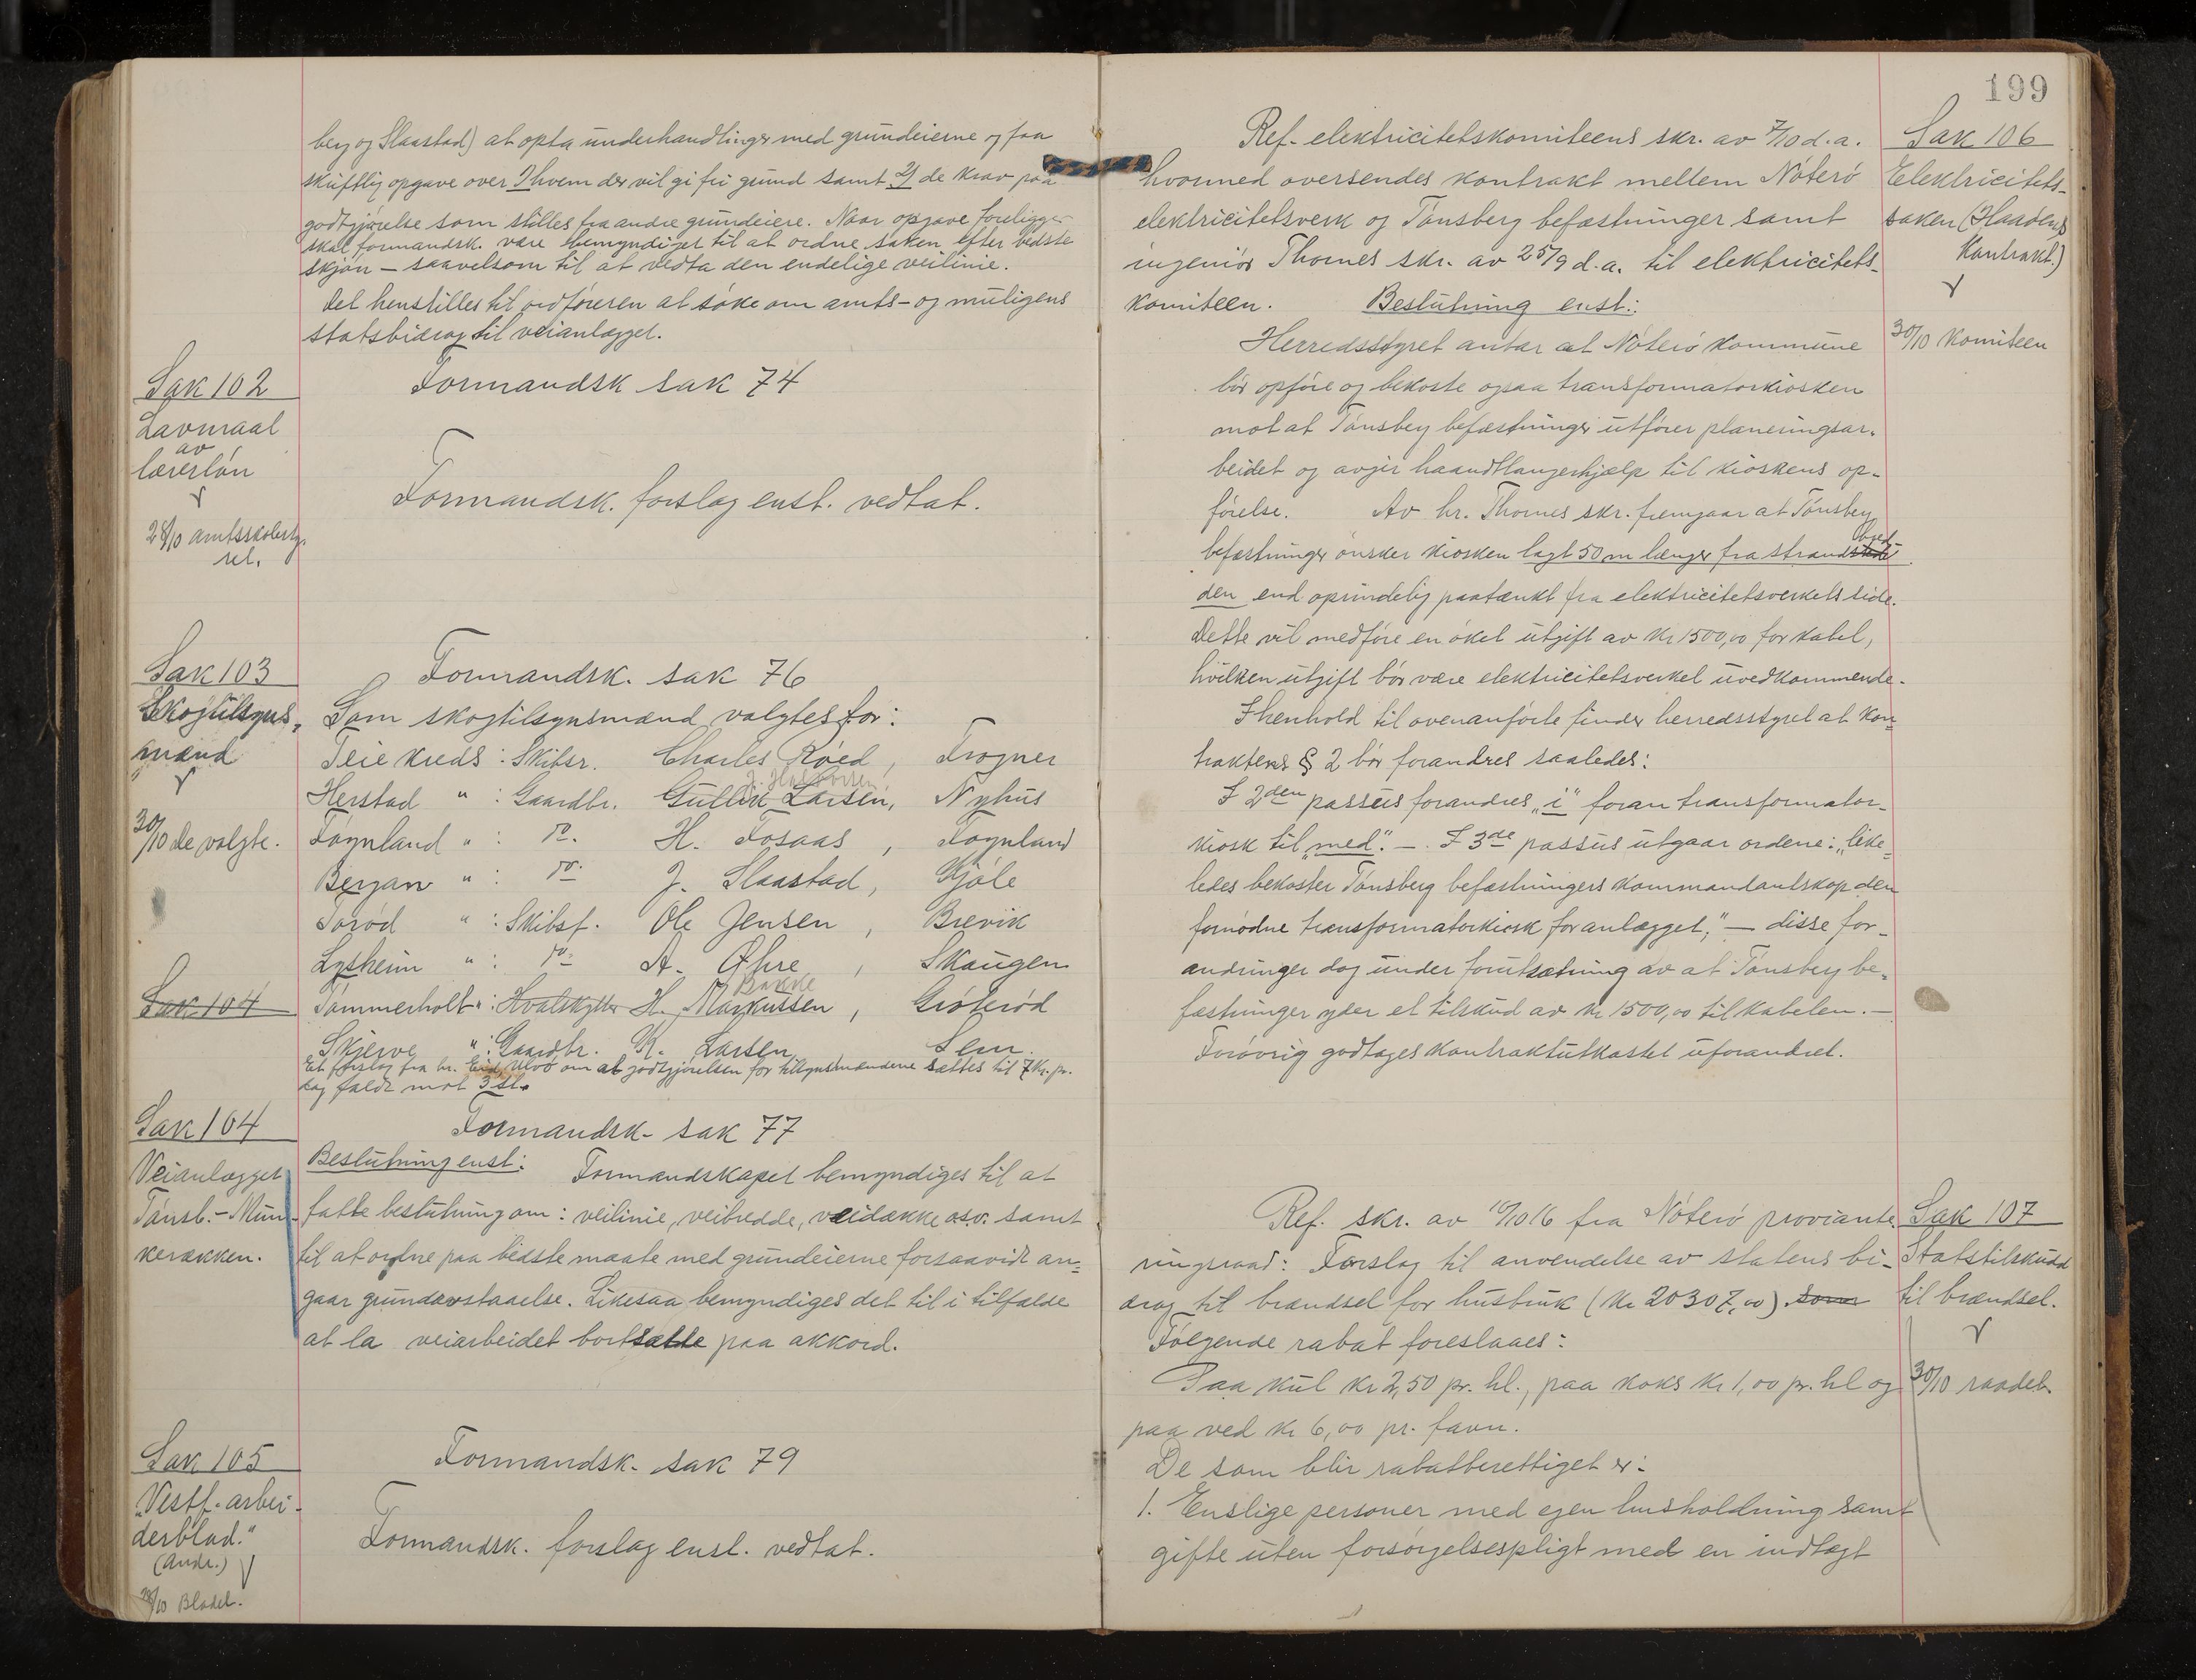 berg og Slaastad) at opta underhandlinger med grundeierne og faa
skriftlig opgave over 1) hvem der vil gi fri grund samt 2) de krav paa
godtgjørelse som stilles fra andre grundeiere. Naar opgave foreligger
skal formandsk. være bemyndiget til at ordne saken efter bedste
skjøn – saavelsom til at vedta den endelige veilinie.
Det henstilles til ordføreren at søke om amts- og muligens
statsbidrag til veianlægget.
Sak 102
Lavmaal
av
lærerløn
28/10 amtsskolesty-
rel.
Formandsk sak 74
Formandsk. forslag enst. vedtat.
Sak 103
Skogtilsyns-
mænd
30/10 de valgte.
Formandsk. sak 76
Som skogtilsynsmænd valgtes for:
Teie kreds : Skibsr. Charles Røed, Trogner
Herstad " : Gaardbr. Gullik Larsen, Nyhus
Føynland " : do. H. Fosaas, Føynland
Bergan " : do. J. Slaastad, Kjøle
Torød " : Skibsf. Ole Jensen, Brevik
Lysheim " : do. A. Øhre, Skaugen
Bakke
Tømmerholt " : Hvalskytter H. Markussen, Grøterød
Skjerve " : Gaardbr. K. Larsen, Sem.
Et forslag fra hr. Ulvø om at godtgjørelsen for tilsynsmændene sættes til 7 kr. pr.
dag faldt mot 3 st.
Sak 104
Sak 104
Veianlægget
Tønsb.- Mun-
kerækken.
Formandsk- sak 77
Beslutning enst: Formandskapet bemyndiges til at
fatte beslutning om: veilinie, veibredde, veidække osv. samt
til at ordne paa bedste maate med grundeierne forsaavidt an-
gaar grundavstaaelse. Likesaa bemyndiges det til i tilfælde
at la veiarbeidet bortsætte paa akkord.
Sak 105
"Vestf. arbei-
derblad."
(Andr.)
28/10 Bladet.
Formandsk- sak 79
Formandsk. forslag enst. vedtat.
199
Sak 106
Elektricitets-
saken (Haadens
Kontrakt.)
30/10 Komiteen
Ref. elektricitetskomiteens skr. av 7/10 d.a.
hvormed oversendes kontrakt mellem Nøterø
elektricitetsverk og Tønsberg befæstninger samt
ingeniør Thornes skr. av 25/9 d.a. til elektricitets-
komiteen. Beslutning enst.:
Herredsstyret antar at Nøterø kommune
bør opføre og bekoste ogsaa transformatorkiosken
mot at Tønsberg befæstninger utfører planeringsar-
beidet og avgir haandtlangerhjælp til kioskens op-
førelse. Av hr. Thornes skr. fremgaar at Tønsberg
befæstninger ønsker kiosken lagt 50 m længer fra strandbred-
den end oprindelig paatænkt fra elektricitetsverkets side.
Dette vil medføre en øket utgift av kr 1500,00 for kabel,
hvilken utgift bør være elektricitetsverket uvedkommende.
I henhold til ovenanførte finder herredsstyret at kon-
traktens § 2 bør forandres saaledes:
I 2den passus forandres "i" foran transformator-
kiosk til "med". – I 3de passus utgaar ordene: "like-
ledes bekoster Tønsberg befæstningers kommandantskap den
fornødne transformatorkiosk for anlægget;" – disse for-
andringer dog under forutsætning av at Tønsberg be-
fæstninger yder et tilskud av kr 1500,00 til kabelen. –
Forøvrig godtages kontraktutkastet uforandret.
Sak 107
Statstilskudd
til brændsel.
30/10 raadet.
Ref. skr. av 10/10 16 fra Nøterø proviante-
ringsraad: Forslag til anvendelse av statens bi-
drag til brændsel for husbruk (kr 20307,00) som
Følgende rabat foreslaaes:
Paa kul kr 2,50 pr. hl., paa koks kr 1,00 pr. hl og
paa ved kr 6,00 pr. favn.
De som blir rabatberettiget er:
1. Enslige personer med egen husholdning samt
gifte uten forsørgelsespligt med en indtægt